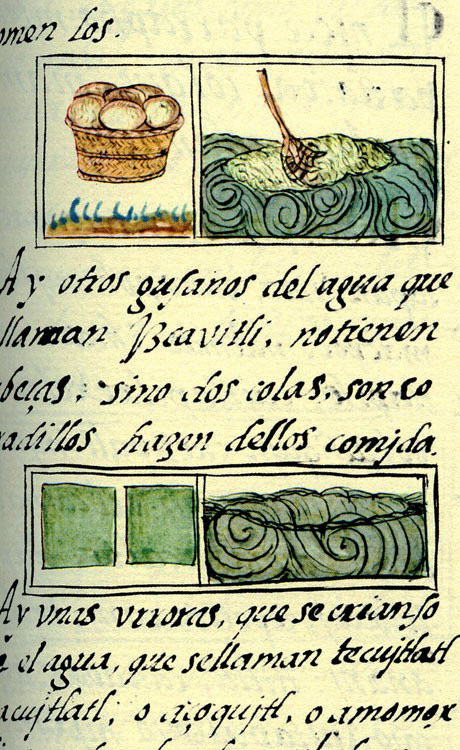 omen los.
Ay otros gusanos del agua que
llaman Izcavitli, notienen
beças, sino dos colas, son co
radillos hazen dellos comjda.
Ay vnas vrroras, que se crian so
e el agua, que sellaman tecujtlatl
acujtlatl, o açoqujtl, o amomox